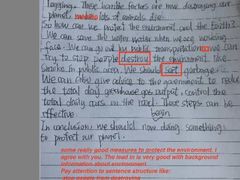 logging. These harmful factors are now destroying our
planet, lots of animals die.
So how can we protect the environment and the Earth?
We can save the water when we are washing
face. We can go out by public transportation. We can
try to stop people destroy the environment like
smoke in public area. We should sort garbage.
We can also give advice to the government to reduce
the total daily greenhouse gas output, control the
total daily cars on the road. These steps can be
effective.
begin
In conclusion, we should now doing something
to protect our planet.
some really good measures to protect the environment. I
agree with you. The lead in is very good with background
information about environment
Pay attention to sentence structure like:
stop people from destroying